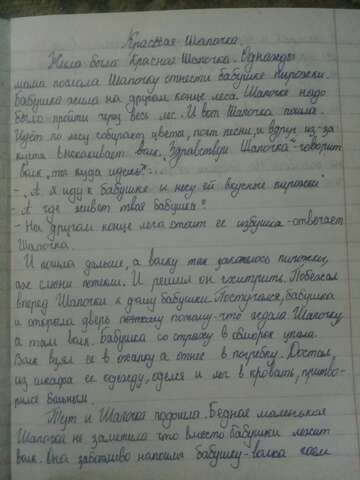 Красная Шапочка.
Жила была Красная Шапочка. Однажды
мама послала Шапочку отнести бабушке пирожки.
Бабушка жила на другом конце леса. Шапочке надо
было пройти через весь лес. И вот Шапочка пошла.
Идёт по лесу собирает цветы, поёт песни, и вдруг из-за
куста выскакивает волк. "Здравствуй Шапочка - говорит
волк, ты куда идешь?"
- А я иду к бабушке и несу ей вкусные пирожки
- А где живет твоя бабушка?
- На другом конце леса стоит ее избушка - отвечает
Шапочка.
И пошла дальше, а волку так захотелось пирожки,
аж слюни потекли. И решил он схитрить. Побежал
вперед Шапочки к дому бабушки. Постучался, бабушка
и открыла дверь потому потому-что ждала Шапочку
а там волк. Бабушка со страху в обморок упала.
Волк взял ее в охапку а отнес в погребку. Достал,
из шкафа ее одежду, оделся и лег в кровать, притво-
рился больным.
Тут и Шапочка подошла. Бедная маленькая
Шапочка не заметила что вместо бабушки лежит
волк. Она заботливо напоила бабушку-волка чаем